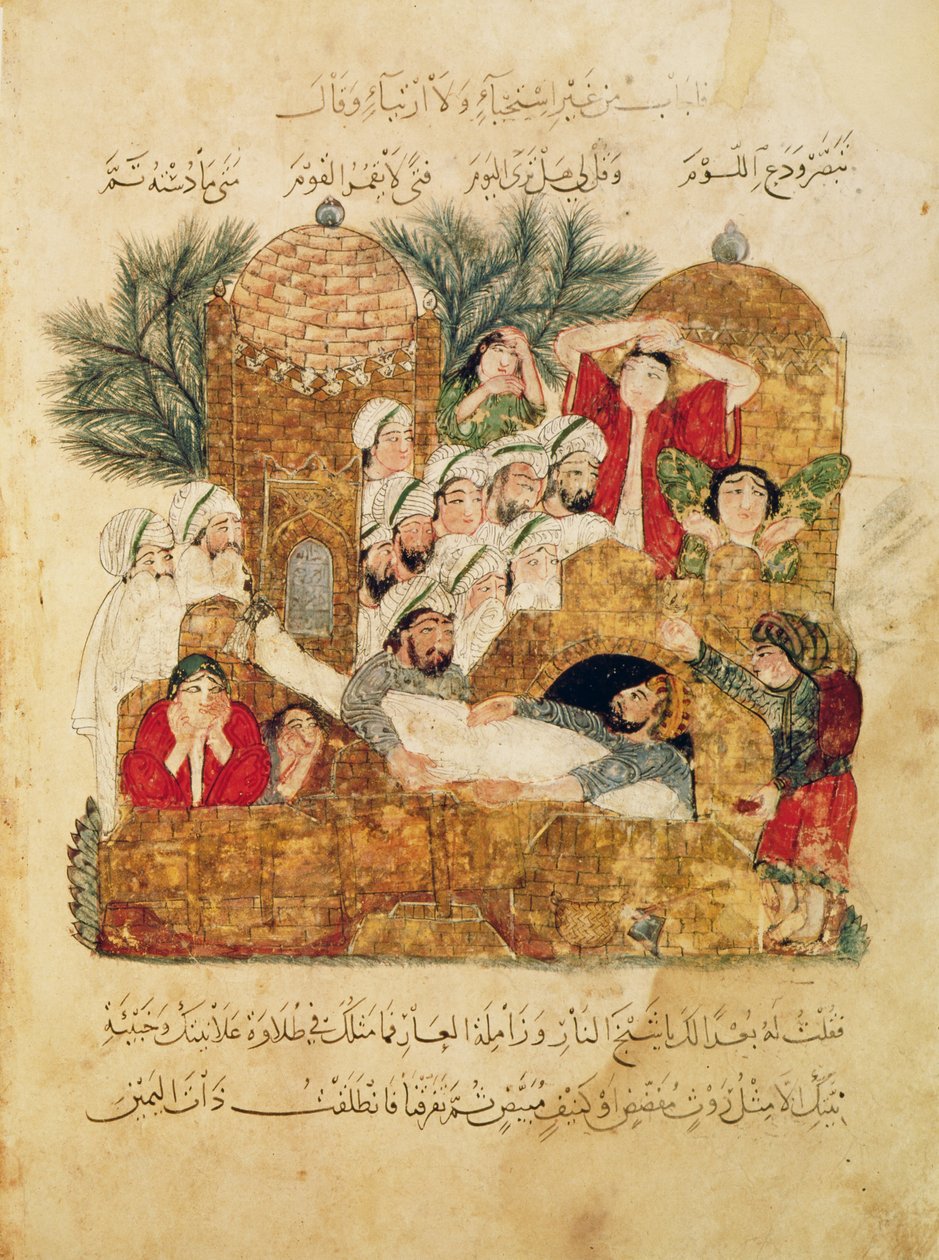 فَاجَابَ مِنْ غَيْرِ اسْتِحْيَاءٍ وَلَا ارْتِيَاءٍ وَقَالَ
تَبَصَّرْ وَدَعِ اللَّوْمَ وَقُلْ لِي هَلْ تَرَى الْيَوْمَ فَتًى لَا يَقْمُرُ الْقَوْمَ مَتَى مَا دَسْتُهُ تَمَّ
فَقُلْتُ لَهُ بُعْدًا لَكَ يَا شَيْخَ النَّارِ وَزَامِلَةَ الْعَارِ فَمَا مَثَلُكَ فِي طُلَاوَةِ عَلَانِيَتِكَ
نِيَّتِكَ إِلَّا مِثْلُ رَوْثٍ مُفَضَّضٍ أَوْ كَنِيفٍ مُبَيَّضٍ ثُمَّ تَفَرَّقْنَا فَانْطَلَقْتُ ذَاتَ الْيَمِينِ